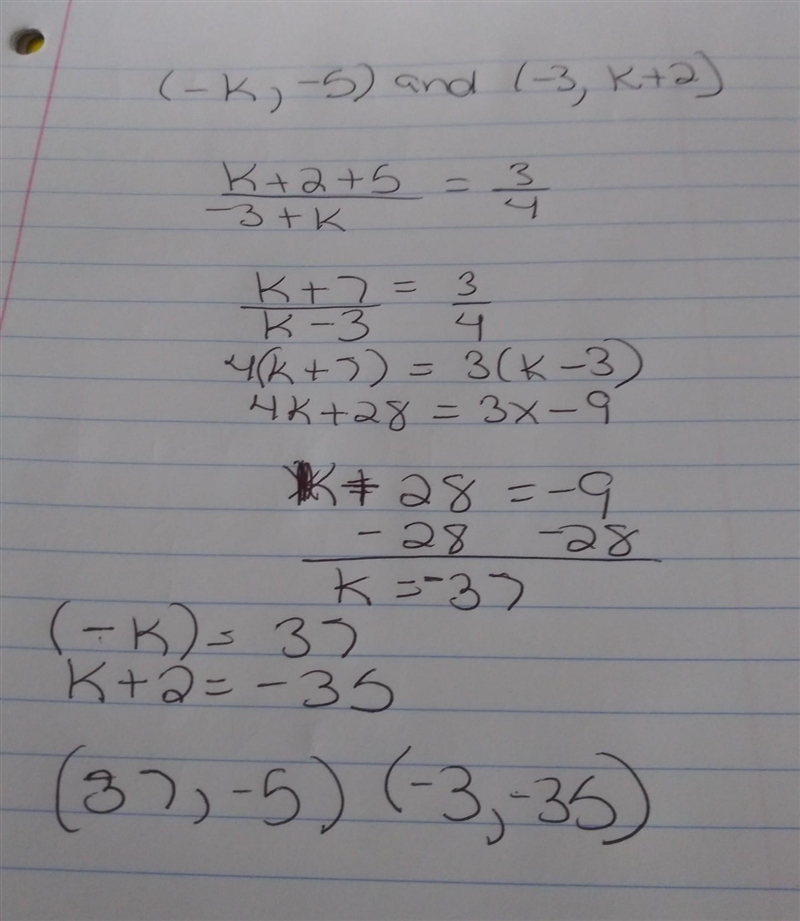 (-K, -5) and (-3, K+2)
K+2+5 = 3
-3+K 4
K+7 = 3
K-3 4
4(K+7) = 3(K-3)
4K+28 = 3x-9
K+28 = -9
-28 -28
K = -37
(-K) = 37
K+2 = -35
(37, -5) (-3, -35)